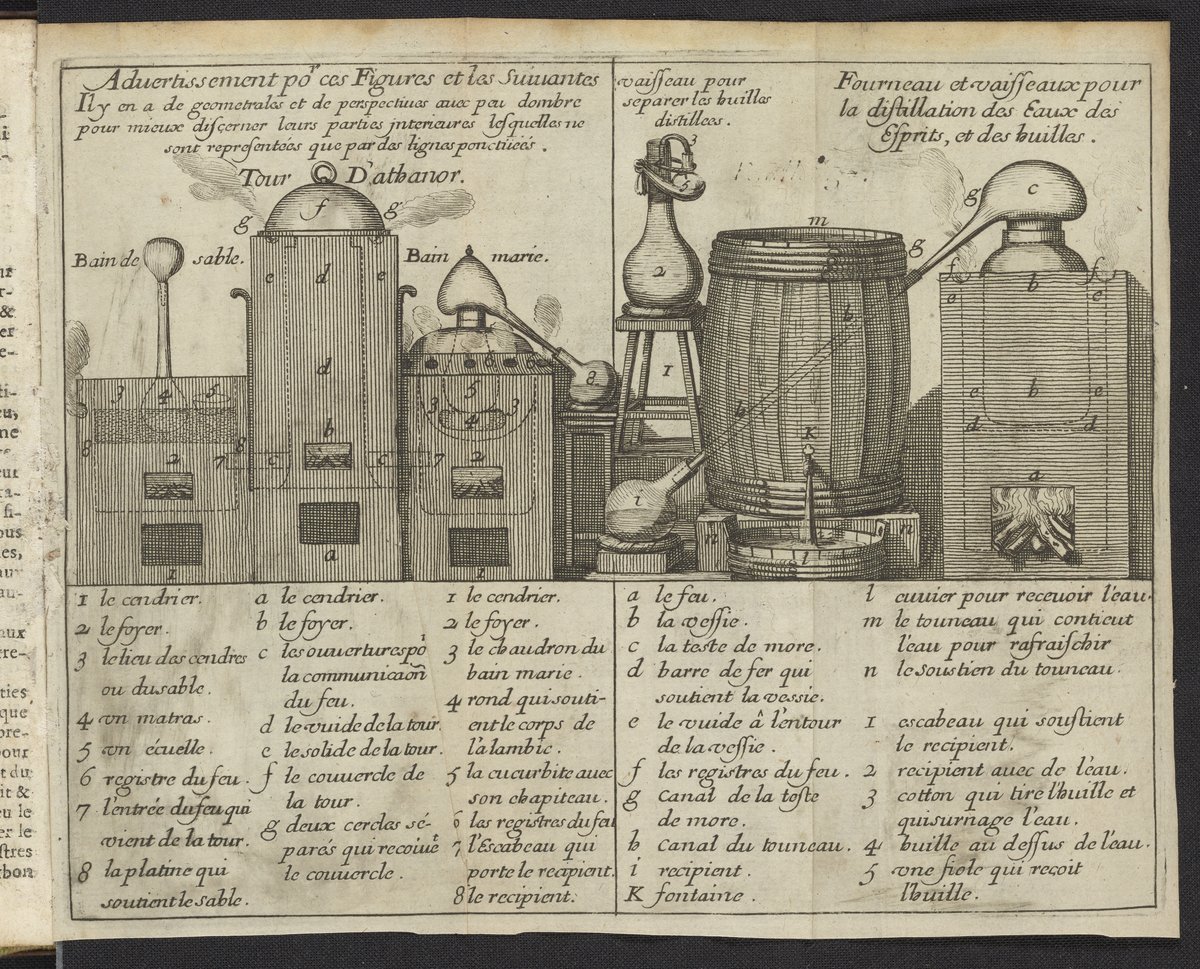 Aduertissement poʳ ces Figures et les Suiuantes
Il y en a de geometrales et de perspectiues auec peu dombre
pour mieux discerner leurs parties jnterieures lesquelles ne
sont representées que par des lignes ponctuées.
Tour D'athanor.
Bain de sable.
Bain marie.
vaisseau pour
separer les huilles
distillées.
Fourneau et vaisseaux pour
la distillation des Eaux des
Esprits, et des huilles.
1 le cendrier.
2 le foyer.
3 le lieu des cendres
ou du sable.
4 vn matras.
5 vn écuelle.
6 registre du feu.
7 l'entrée du feu qui
vient de la tour.
8 la platine qui
soutient le sable.
a le cendrier.
b le foyer.
c les ouuertures poʳ
la communicaõn
du feu.
d le vuide de la tour.
e le solide de la tour.
f le couuercle de
la tour.
g deux cercles sé-
parés qui recoiuēᵗ
le couuercle.
1 le cendrier.
2 le foyer.
3 le chaudron du
bain marie.
4 rond qui souti-
ent le corps de
l'alambic.
5 la cucurbite auec
son chapiteau.
6 les registres du feu
7 l'Escabeau qui
porte le recipient.
8 le recipient.
a le feu.
b la vessie.
c la teste de more.
d barre de fer qui
soutient la vessie.
e le vuide â l'entour
de la vessie.
f les registres du feu.
g canal de la teste
de more.
h canal du touneau.
i recipient.
K fontaine.
l cuuier pour receuoir l'eau.
m le touneau qui contient
l'eau pour rafraischir
n le soustien du touneau.
1 escabeau qui soustient
le recipient.
2 recipient auec de l'eau.
3 cotton qui tire l'huille et
qui surnage l'eau.
4 huille au dessus de l'eau.
5 vne fiole qui reçoit
l'huille.